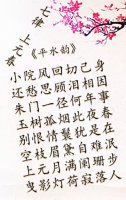 七律 上元嘆
《平水韵》
小院风回切己身
还愁思顾泪相因
朱门一径何年事
玉树孤烟此夜春
别恨情鬟犹是在
空枝眉黛自难泯
上元月满阑珊步
曳影灯荷寂落人